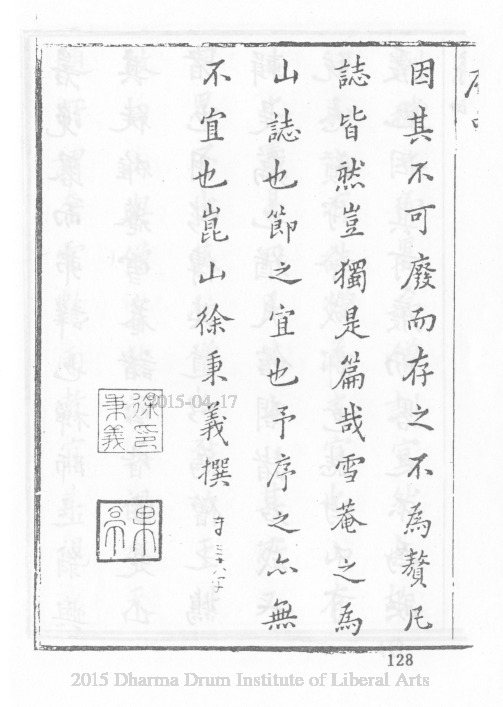 因其不可廢而存之不為贅凡
誌皆然豈獨是篇哉雪菴之為
山誌也節之宜也予序之亦無
不宜也崑山徐秉義撰
徐印
秉義
果亭
2015-04-17
128
2015 Dharma Drum Institute of Liberal Arts